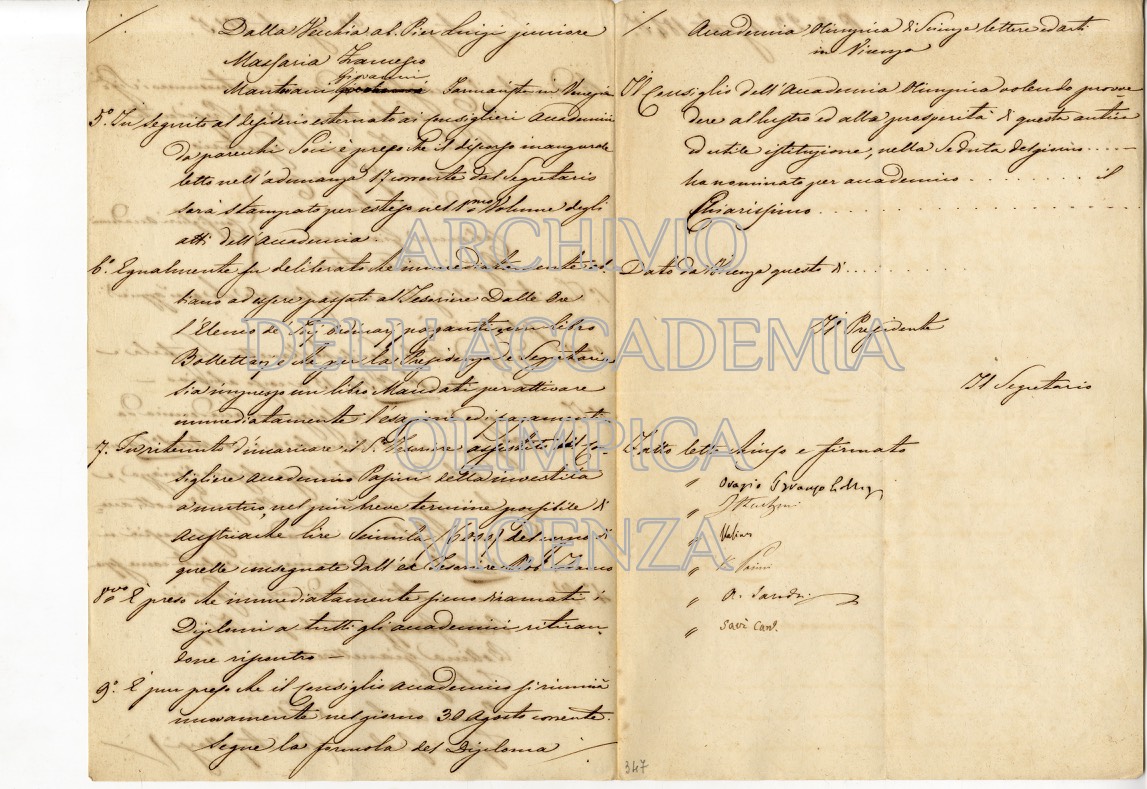 Dalla Vecchia ab. Pier Luigi juniore
Massaria Francesco
Mantovani Giovanni Farmacista in Venezia
5.° In seguito al desiderio esternato ai consiglieri accademici
da parecchi Soci è preso che il discorso inaugurale
letto nell'adunanza 17 corrente dal Segretario
sarà stampato per esteso nel Volume degli
atti dell'Accademia.
6.° Egualmente fu deliberato che immediatamente ab-
biano ad essere passati al Tesoriere Dalle Ore
l'Elenco dei Socj ordinarj paganti, un libro
Bollettarj e che per la Presidenza e Segretaria
sia impresso un libro Mandati per attivare
immediatamente l'esazione ed i pagamenti
7. Fu ritenuto d'incaricare il S.r Tesoriere assistito dal Con-
sigliere accademico Pasini della investita
a mutuo, nel più breve termine possibile di
austriache lire Seimila (6000) del corso di
quelle consegnate dall'ex Tesoriere Nob.
8.vo È preso che immediatamente sieno diramati i
Diplomi a tutti gli accademici, ritiran-
done riscontro —
9.° È pur preso che il Consiglio accademico si riunirà
nuovamente nel giorno 30 Agosto corrente.
Segue la formula del Diploma
Accademia Olimpica di Scienze lettere ed arti
in Vicenza
Il Consiglio dell'Accademia Olimpica volendo provve-
dere al lustro ed alla prosperità di questa antica
ed utile istituzione, nella Seduta del giorno ......
ha nominato per accademico .......... il
Chiarissimo ..........
Dato da Vicenza questo dì ..........
Il Presidente
Il Segretario
Fatto letto chiuso e firmato
" Orazio
"
" Valier
" Pasini
" A.
" Savi Cant.
347
ARCHIVIO
DELL'ACCADEMIA
OLIMPICA
VICENZA